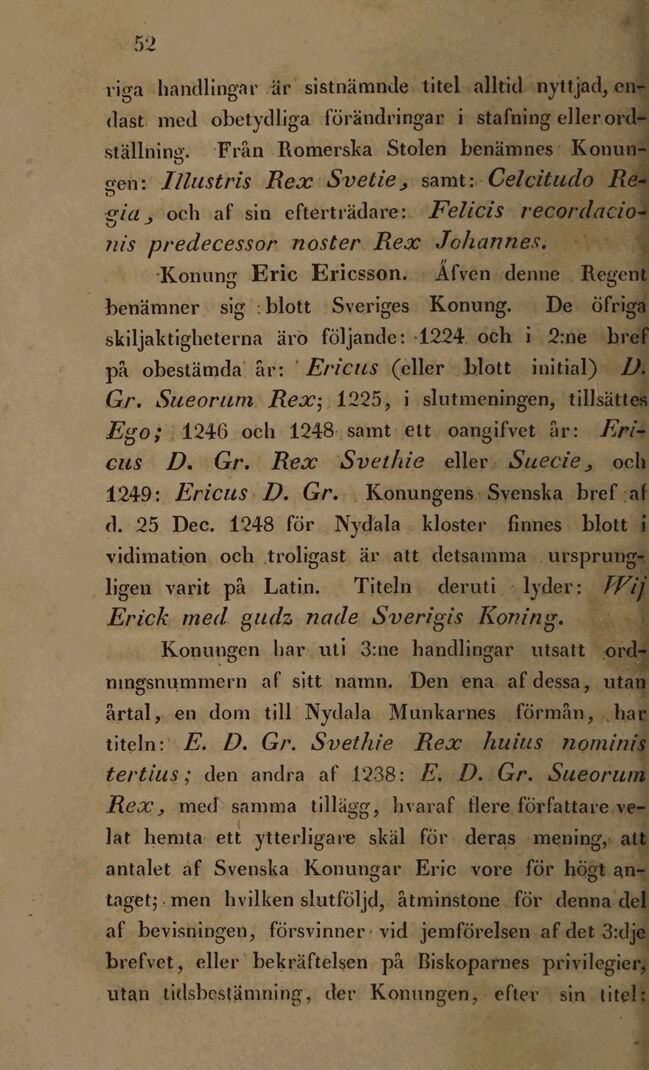 52
riga handlingar är sistnämnde titel alltid nyttjad, en-
dast med obetydliga förändringar i stafning eller ord-
ställning. Från Romerska Stolen benämnes Konun-
gen: Illustris Rex Svetie, samt: Celcitudo Re-
gia, och af sin efterträdare: Felicis recordacio-
nis predecessor noster Rex Johannes.
Konung Eric Ericsson. Äfven denne Regent
benämner sig blott Sveriges Konung. De öfriga
skiljaktigheterna äro följande: 1224 och i 2:ne bref
på obestämda år: Ericus (eller blott initial) D.
Gr. Sueorum Rex; 1225, i slutmeningen, tillsättes
Ego; 1246 och 1248 samt ett oangifvet år: Eri-
cus D. Gr. Rex Svethie eller Suecie, och
1249: Ericus D. Gr. Konungens Svenska bref af
d. 25 Dec. 1248 för Nydala kloster finnes blott i
vidimation och troligast är att detsamma ursprung-
ligen varit på Latin. Titeln deruti lyder: Wij
Erick med gudz nade Sverigis Koning.
Konungen har uti 3:ne handlingar utsatt ord-
ningsnummern af sitt namn. Den ena af dessa, utan
årtal, en dom till Nydala Munkarnes förmån, har
titeln: E. D. Gr. Svethie Rex huius nominis
tertius; den andra af 1238: E. D. Gr. Sueorum
Rex, med samma tillägg, hvaraf flere författare ve-
lat hemta ett ytterligare skäl för deras mening, att
antalet af Svenska Konungar Eric vore för högt an-
taget; men hvilken slutföljd, åtminstone för denna del
af bevisningen, försvinner vid jemförelsen af det 3:dje
brefvet, eller bekräftelsen på Biskoparnes privilegier,
utan tidsbestämning, der Konungen, efter sin titel: